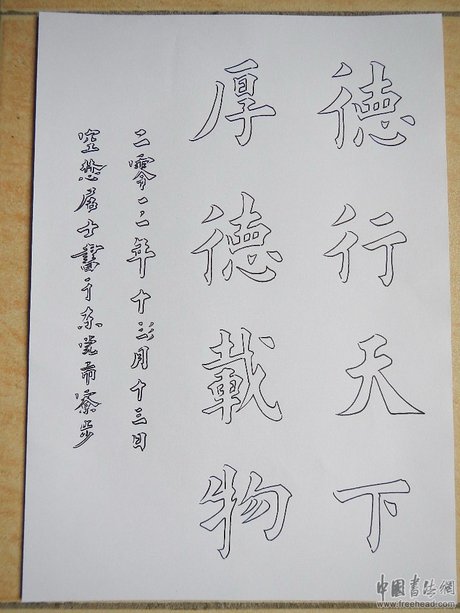 德行天下
厚德載物
二零一二年十二月十三日
空居士書于东莞市寮步
中國書法網
www.freehead.com